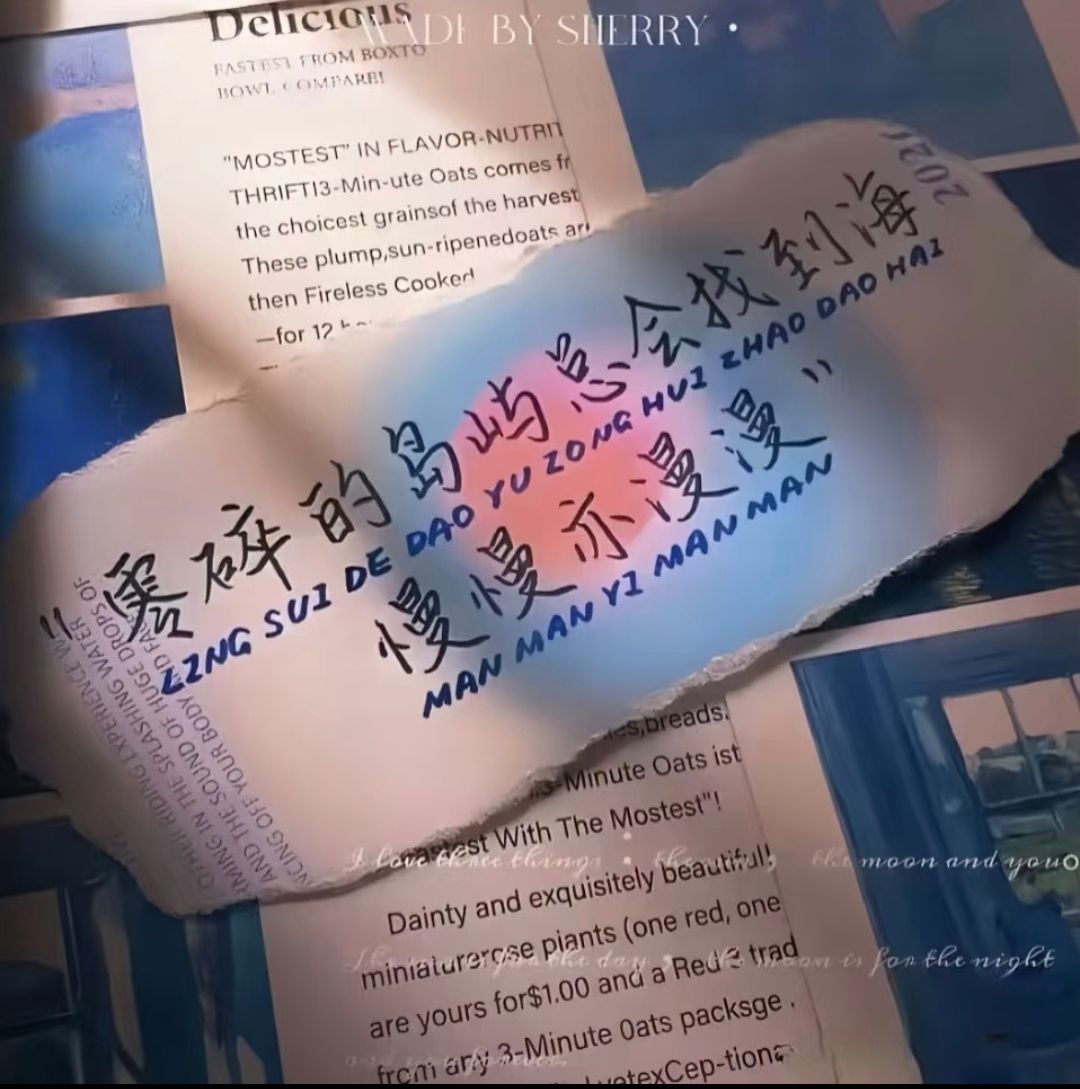 Delicious
MADE BY SHERRY •
FASTEST FROM BOXTO
BOWL COMPARE!
"MOSTEST" IN FLAVOR-NUTRIT
THRIFTI3-Min-ute Oats comes fr
the choicest grainsof the harvest
These plump,sun-ripenedoats ar
then Fireless Cooked
—for 12
202
"零碎的岛屿总会找到海
LING SUI DE DAO YU ZONG HUI ZHAO DAO HAI
慢慢亦漫漫"
MAN MAN YI MAN MAN
OTHER RIDING EXPERIENCE
MING IN THE SPLASHING WATER
AND THE SOUND OF HUGE DROPS OF
NCING OFF YOUR BODY
es,breads.
3-Minute Oats ist
Fastest With The Mostest"!
I love three things • the the moon and you
Dainty and exquisitely beautiful!
miniaturerose piants (one red, one
the day , the moon is for the night
are yours for$1.00 and a Red 3 trad
from any 3-Minute Oats packsge .
and you forever.
votexCep-tiona